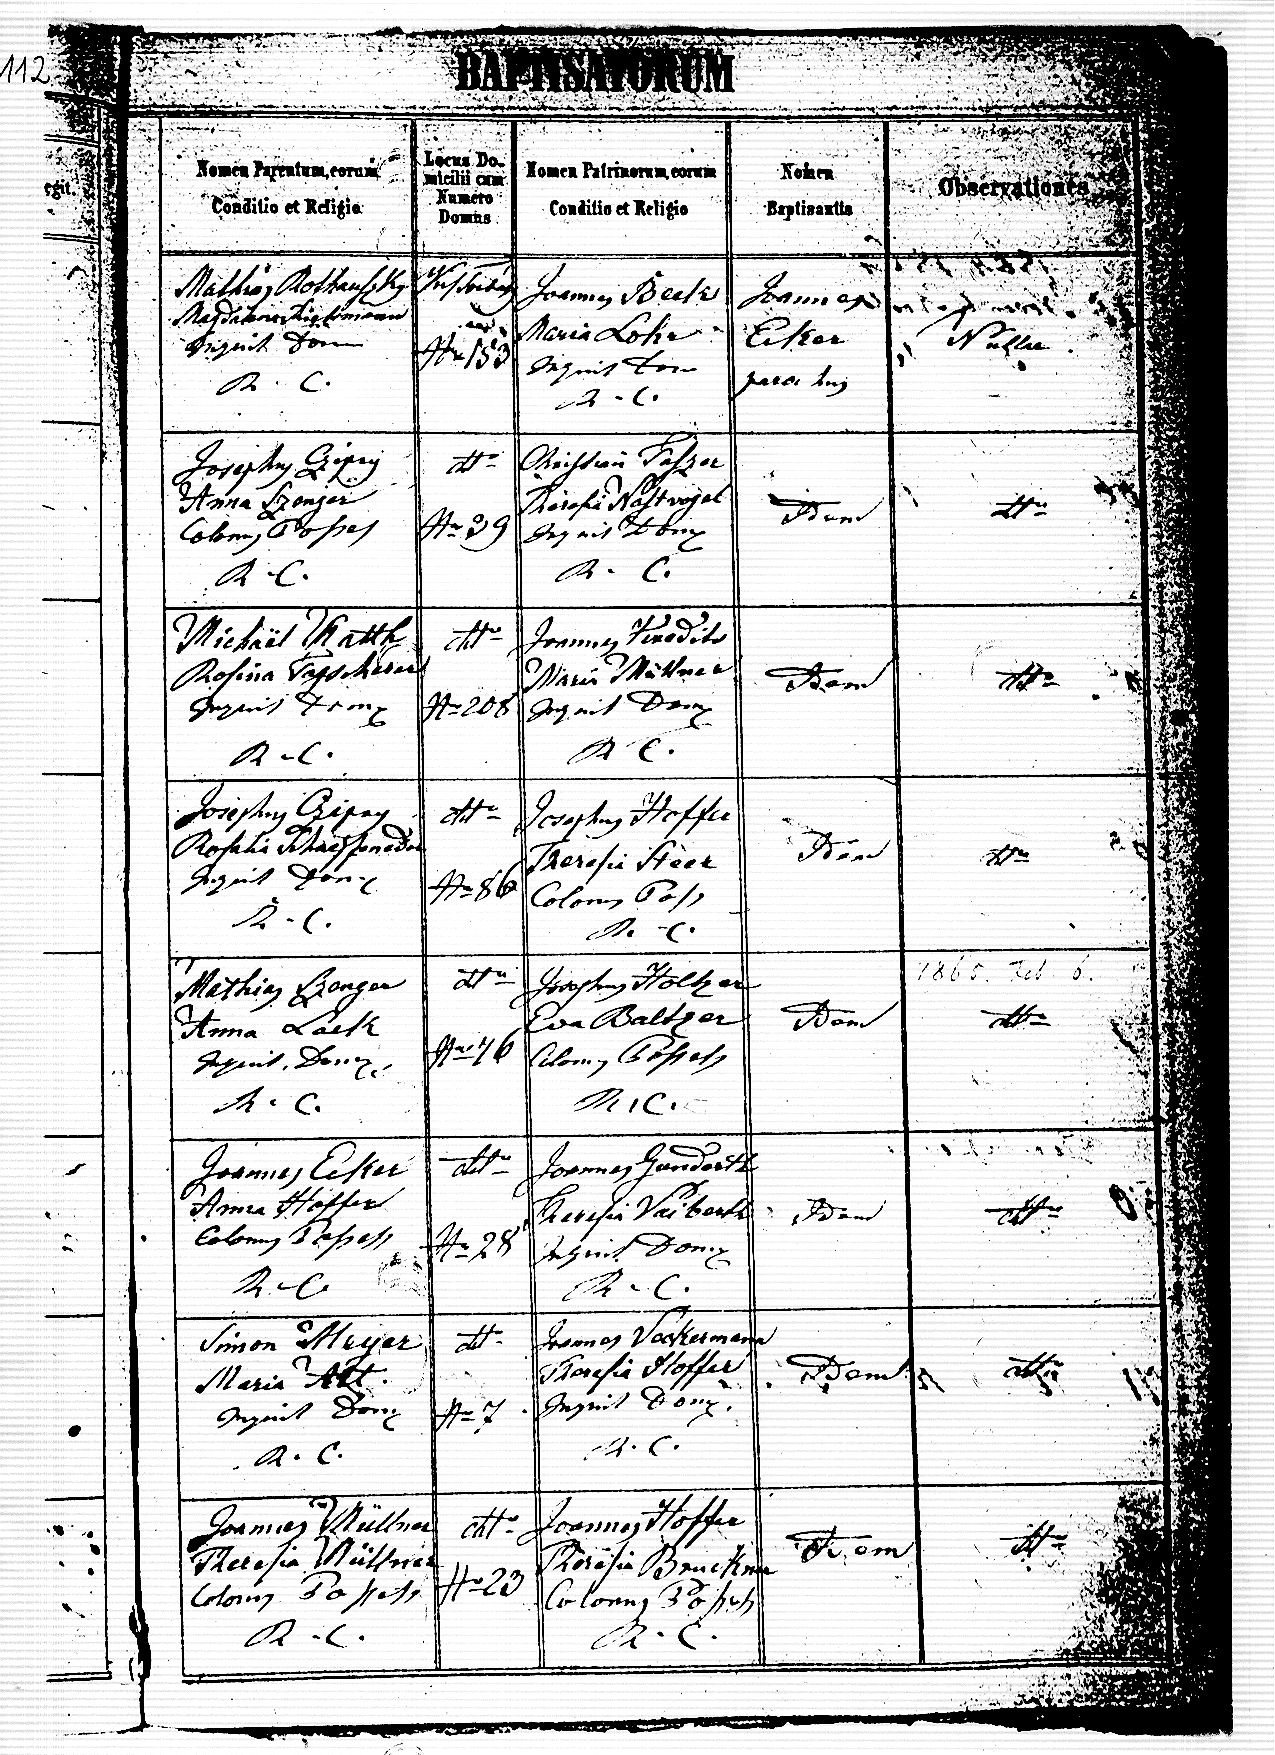 112
BAPTISATORUM
egit.
Nomen Parentum, eorum Conditio et Religio
Locus Domicilii cum Numero Domus
Nomen Patrinorum, eorum Conditio et Religio
Nomen Baptisantis
Observationes
Mathias
Magdalena
Inquil Dom
R. C.
Nro 153
Joannes Beck
Maria
Inquil Dom
R. C.
Joannes
Ecker
paro. huj
Nullae.
Josephus Czipry
Anna Szenger
Colonus Possess
R. C.
dtto
Nro 39
Christian
Theresia Nastvogel
Inquil Dom
R. C.
Idem
dtto
Michaël
Rosina
Inquil Dom
R. C.
dtto
Nro 208
Joannes
Maria Müllner
Inquil Dom
R C.
Idem
dtto
Josephus Czipry
Rosalia
Inquil Dom
R. C.
dtto
Nro 86
Josephus Hoffer
Theresia Steer
Colonus Poss
R. C.
Idem
dtto
Mathias Szenger
Anna Lack
Inquil. Dom
R. C.
dtto
Nro 76
Josephus Holtzer
Eva Baltzer
Colonus Possess
R. C.
Idem
1860. Feb. 6.
dtto
Joannes Ecker
Anna Hoffer
Colonus Possess
R. C.
dtto
Nro 28
Joannes
Theresia
Inquil Dom
R. C.
Idem
dtto
Simon Meyer
Maria Alt.
Inquil Dom
R. C.
dtto
Nro 7
Joannes Vockermann
Theresia Hoffer
Inquil Dom.
R. C.
Idem
dtto
Joannes Müllner
Theresia Müllner
Colonus Possess
R. C.
dtto
Nro 23
Joannes Hoffer
Theresia Bruckner
Colonus Possess
R. C.
Idem
dtto